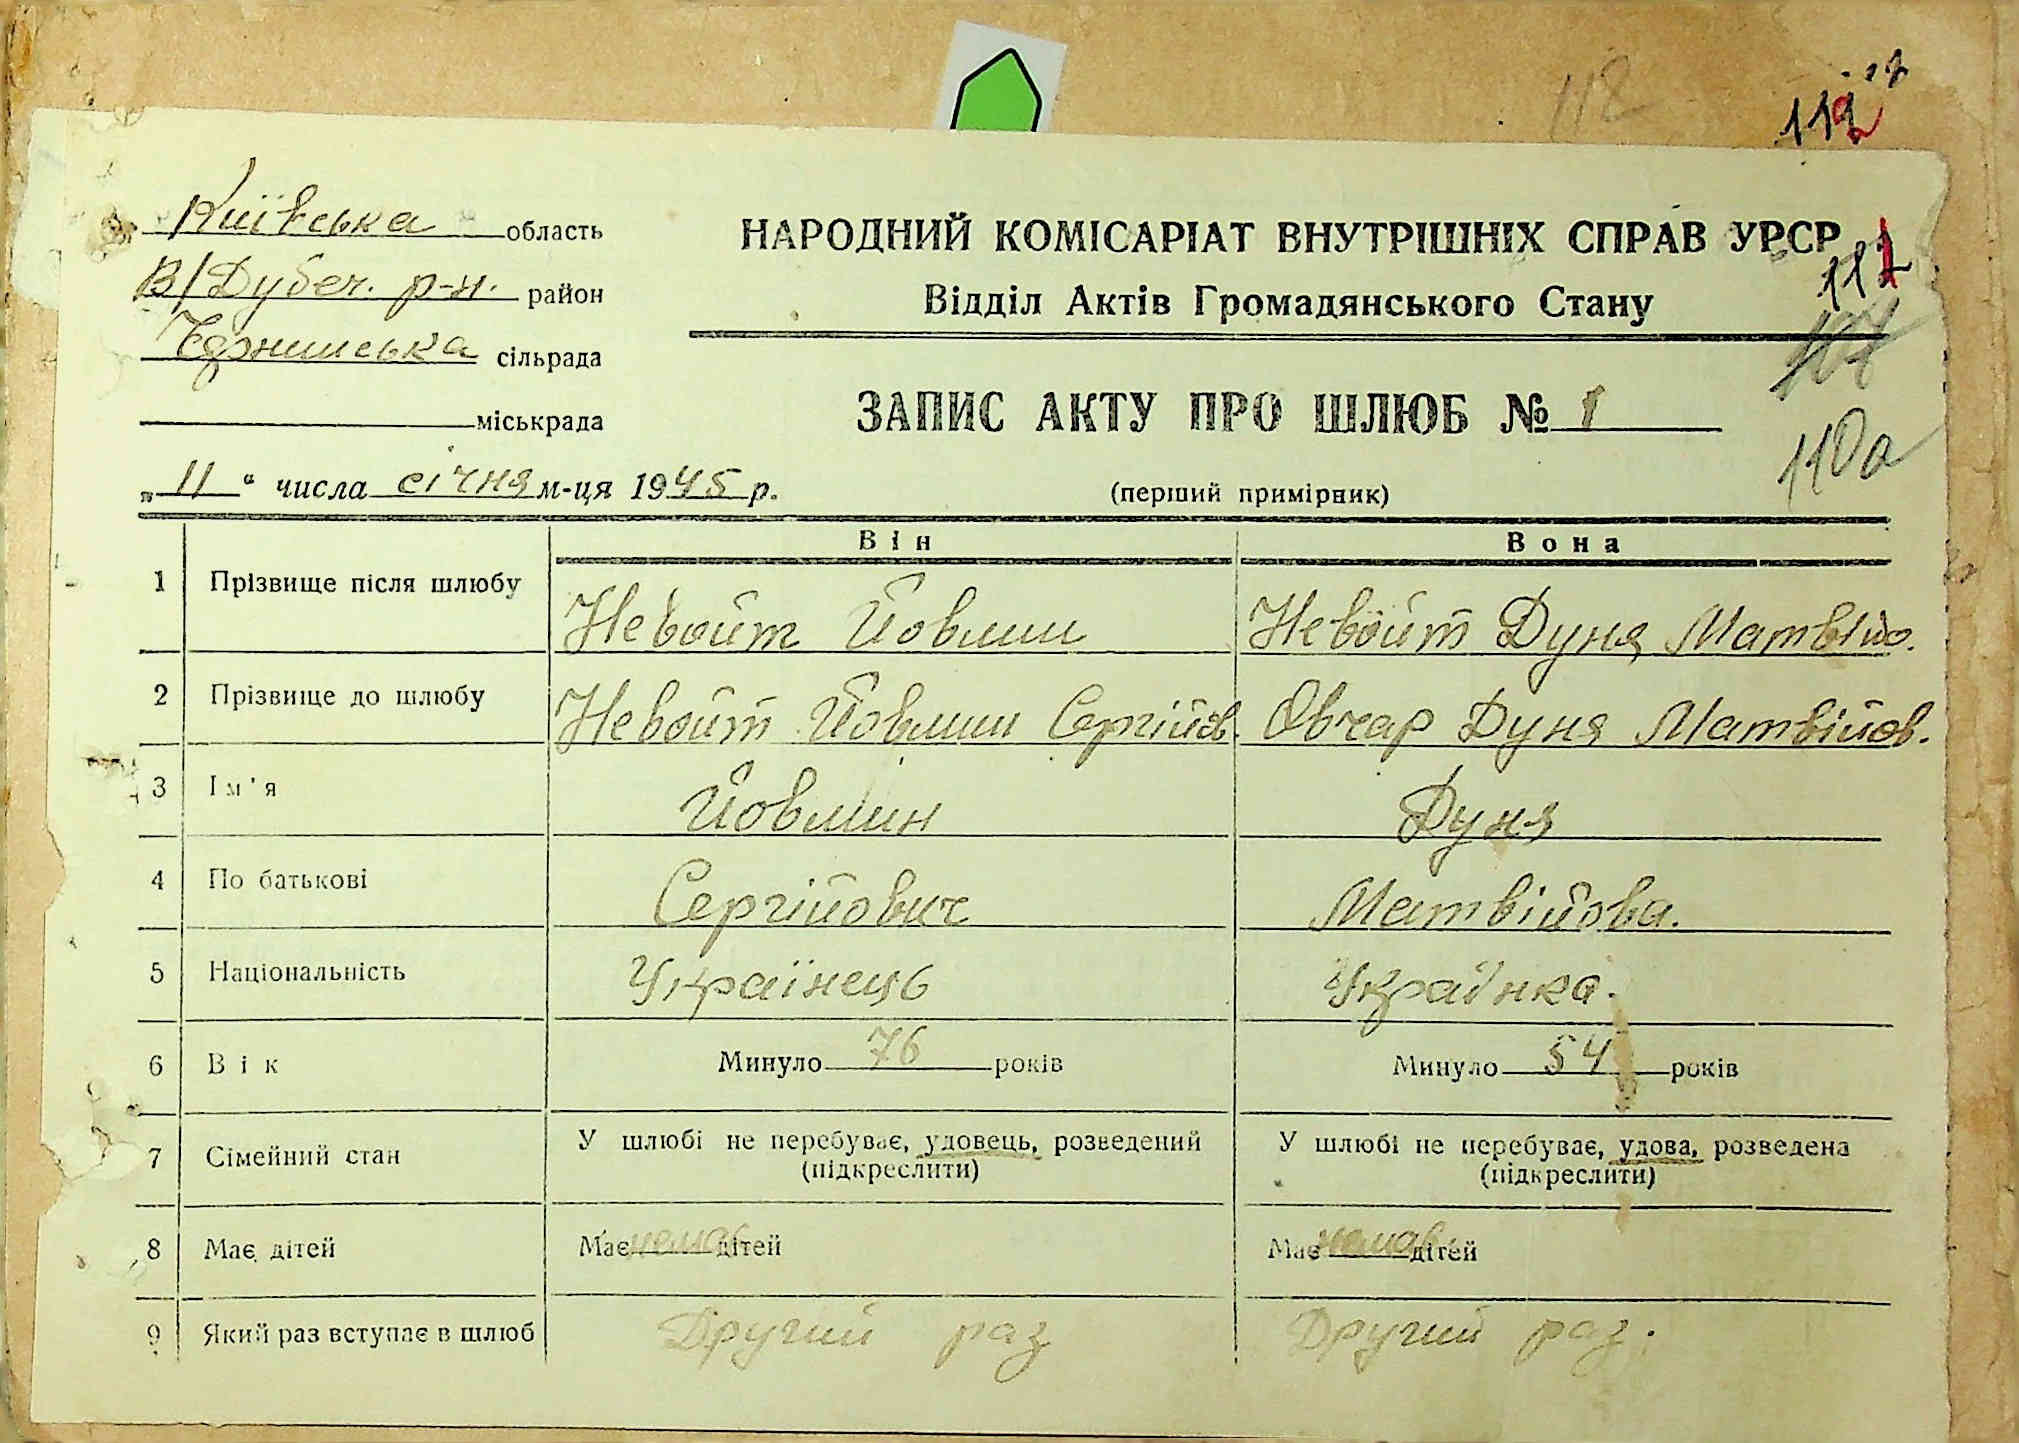 118
112
Київська область
В/Дубеч. р-н. район
сільрада
міськрада
НАРОДНИЙ КОМІСАРІАТ ВНУТРІШНІХ СПРАВ УРСР
Відділ Актів Громадянського Стану
ЗАПИС АКТУ ПРО ШЛЮБ № 1
110а
„11“ числа січня м-ця 1945 р.
(перший примірник)
Він Вона
1 Прізвище після шлюбу Невойт Йовмин Невойт Дуня Матвійо.
2 Прізвище до шлюбу Невойт Йовмин Сергійов. Овчар Дуня Матвійов.
3 Ім'я Йовмин Дуня
4 По батькові Сергійович Матвійова.
5 Національність Українець Українка.
6 Вік Минуло 76 років Минуло 54 років
7 Сімейний стан У шлюбі не перебуває, удовець, розведений У шлюбі не перебуває, удова, розведена
(підкреслити) (підкреслити)
8 Має дітей Має немає дітей Має немає дітей
9 Який раз вступає в шлюб Другий раз Другий раз.